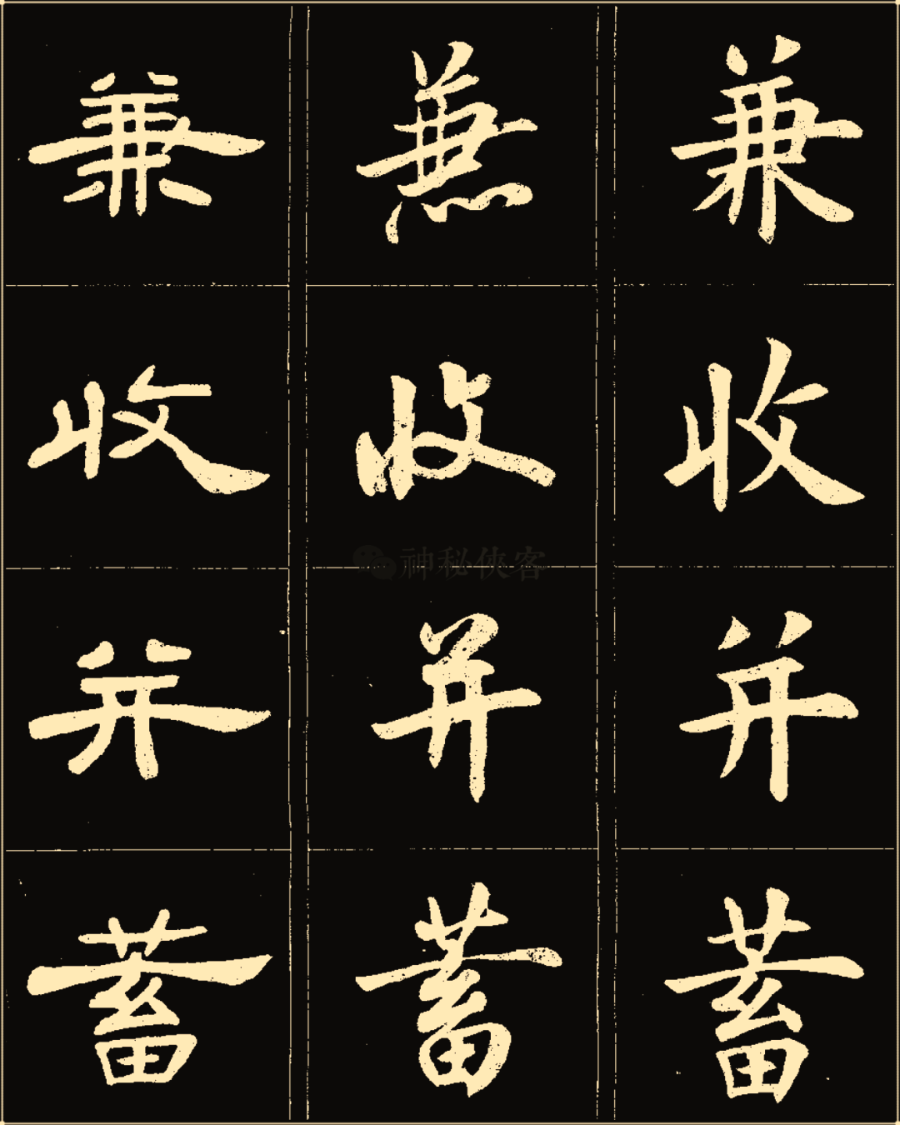 兼 兼 兼
收 收 收
神秘侠客
并 并 并
蓄 蓄 蓄